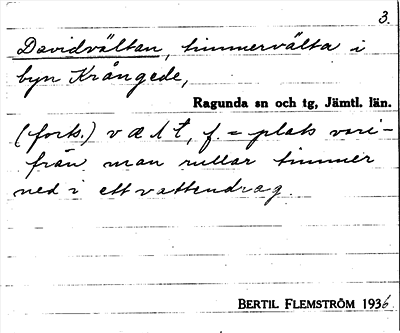 3.
Davidvältan, timmervälta i
byn Krångede,
Ragunda sn och tg, Jämtl. län.
(forts.) v æ l t, f = plats vari-
från man rullar timmer
ned i ett vattendrag.
BERTIL FLEMSTRÖM 1936.